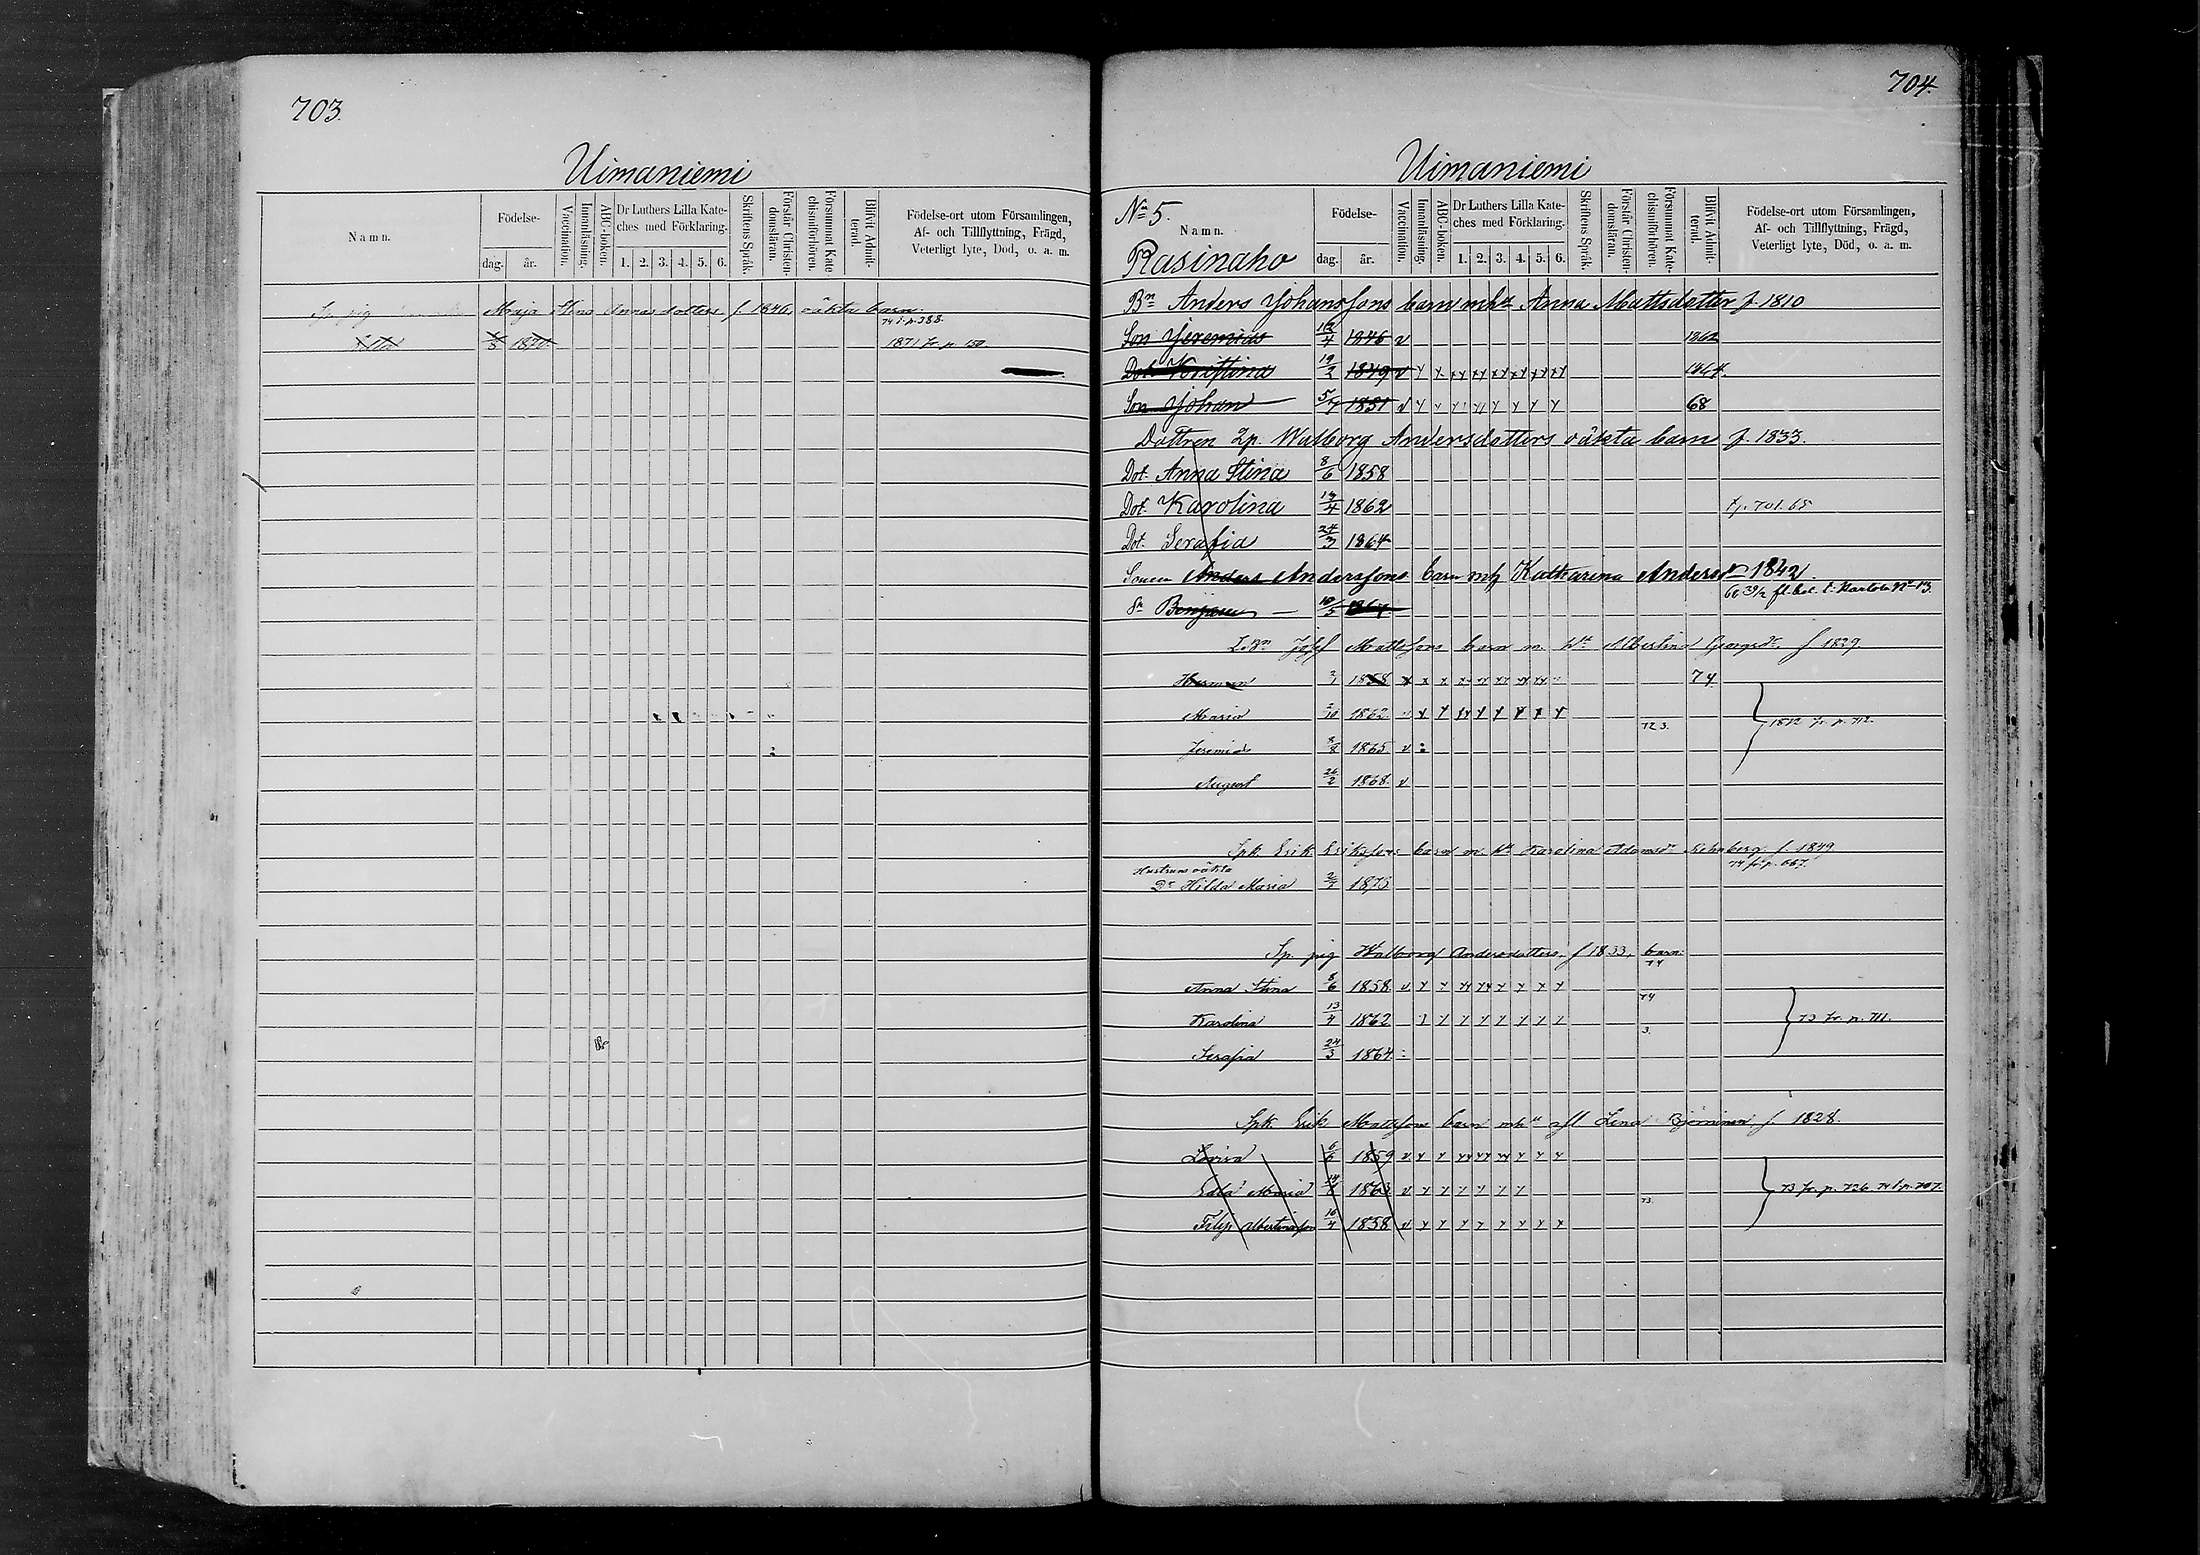 703.
Uimaniemi
Namn.
Födelse-
dag.
år.
Vaccination.
Innanläsning.
ABC-boken.
Dr Luthers Lilla Kate-
ches med Förklaring.
1. 2. 3. 4. 5. 6.
Skriftens Språk.
Förstår Christen-
domsläran.
Försummat Kate
chismiförhören.
Blifvit Admit-
terad.
Födelse-ort utom Församlingen,
Af- och Tillflyttning, Frägd,
Veterligt lyte, Död, o. a. m.
Maja Stina Annas dotters f. 1846, oäkta barn.
74 t. p. 388.
1870. 1871 fr. p. 150.
704.
Uimaniemi
No 5.
Namn.
Rasinaho
Födelse-
dag.
år.
Vaccination.
Innanläsning.
ABC-boken.
Dr Luthers Lilla Kate-
ches med Förklaring.
1. 2. 3. 4. 5. 6.
Skriftens Språk.
Förstår Christen-
domsläran.
Försummat Kate-
chismiförhören.
Blifvit Admit-
terad.
Födelse-ort utom Församlingen,
Af- och Tillflyttning, Frägd,
Veterligt lyte, Död, o. a. m.
Bn Anders Johanssons barn mhu Anna Mattsdotter f. 1810
Son Jeremias 12/4 1846 v 1862
Dot. Kristina 19/2 1849 v 1864.
Son Johan 5/7 1851 v 68
Dottren Ip. Walborg Andersdotters oäkta barn f. 1833.
Dot. Anna Stina 8/6 1858
Dot. Karolina 13/4 1862 701. 65
Dot. Serafia 24/3 1864
Sonen Anders Anderssons barn mh Katharina Anders 1842.
Sn Benjam 10/5
Mattssons barn m. hu Albertina Georgsdr. f 1829.
Herman 1858 74
Maria 1862 72 3. 1872 fr. p. 712.
Jeremias 8/8 1865 v
August 26/2 1868. v
Spk. Erik Erikssons barn m. hu Karolina Adamsdr f. 1849
74 fr. p. 667.
Hustruns oäkta
Dr Hilda Maria 1873
Sp. pig Walborg Andersdotters, f 1833, barn:
74
Anna Stina 8/6 1858 v
74
Karolina 13/4 1862 73 fr. p. 711.
3.
Serafia 24/3 1864
Spk. Erik Mattssons barn mhu afl Lena f. 1828.
Lovisa 1859 v
Edla Maria 1863 v 73. 73 fr. p. 726. 74 t. p. 707.
Filip Albertinason 10/4 1858 v